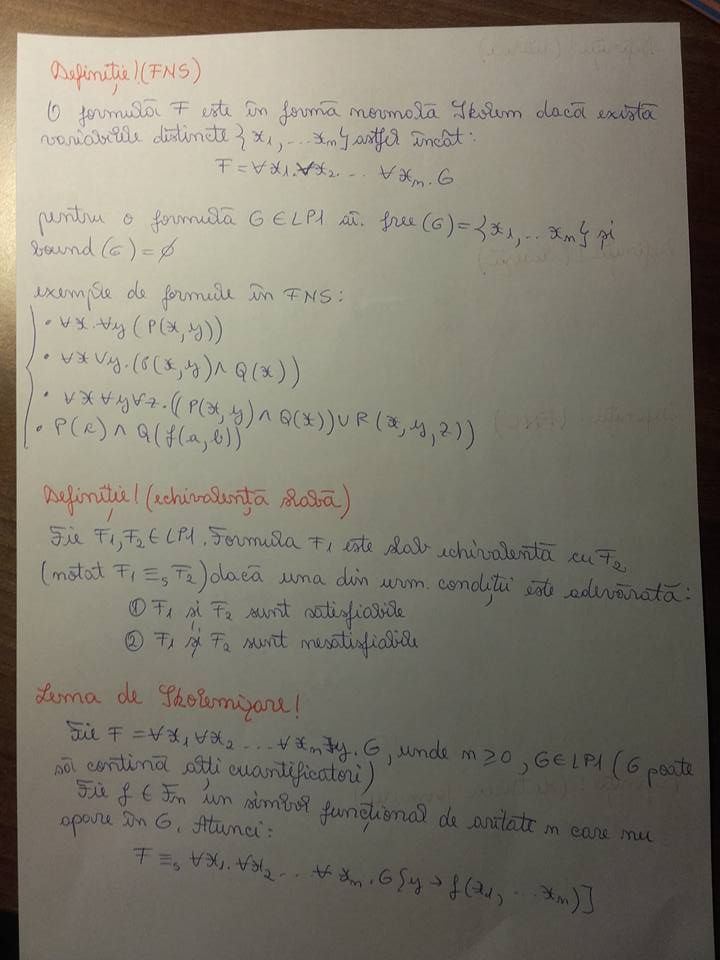 Definiție! (FNS)
O formulă F este în formă normală Skolem dacă există
variabilele distincte {x1, ... xn} astfel încât:
F = ∀x1.∀x2 ... ∀xn.G
pentru o formulă G ∈ LP1 aî. free(G) = {x1, .. xn} și
bound(G) = ∅
exemple de formule în FNS:
• ∀x.∀y(P(x,y))
• ∀x∀y.(P(x,y) ∧ Q(x))
• ∀x∀y∀z.((P(x,y) ∧ Q(x)) ∪ R(x,y,z))
• P(e) ∧ Q(f(a,b))
Definiție! (echivalență slabă)
Fie F1, F2 ∈ LP1. Formula F1 este slab echivalentă cu F2
(notat F1 ≡s F2) dacă una din urm. condiții este adevărată:
① F1 și F2 sunt satisfiabile
② F1 și F2 sunt nesatisfiabile
Lema de Skolemizare!
Fie F = ∀x1∀x2 ... ∀xn∃y.G, unde n ≥ 0, G ∈ LP1 (G poate
să conțină alți cuantificatori)
Fie f ∈ Fn un simbol funcțional de aritate n care nu
apare în G. Atunci:
F ≡s ∀x1.∀x2 ... ∀xn.G{y → f(x1, ... xn)]